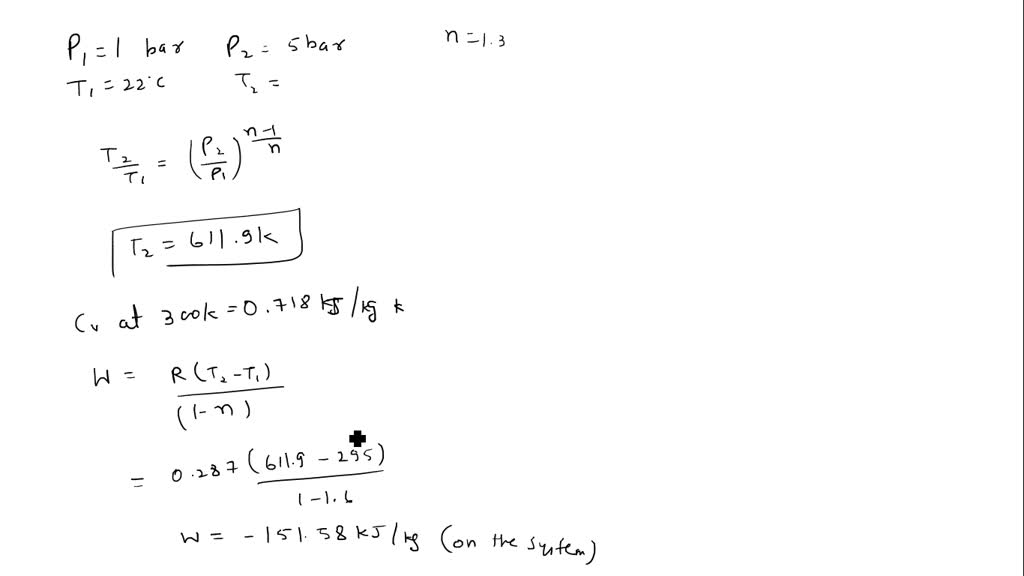 P₁ = 1 bar P₂ = 5 bar n = 1.3
T₁ = 22°C T₂ =
T₂/T₁ = (P₂/P₁)^(n-1/n)
T₂ = 611.9k
Cv at 300k = 0.718 kJ/kg k
W = R(T₂-T₁)/(1-n)
= 0.287(611.9 - 295)/1-1.6
W = -151.58 kJ/kg (on the system)